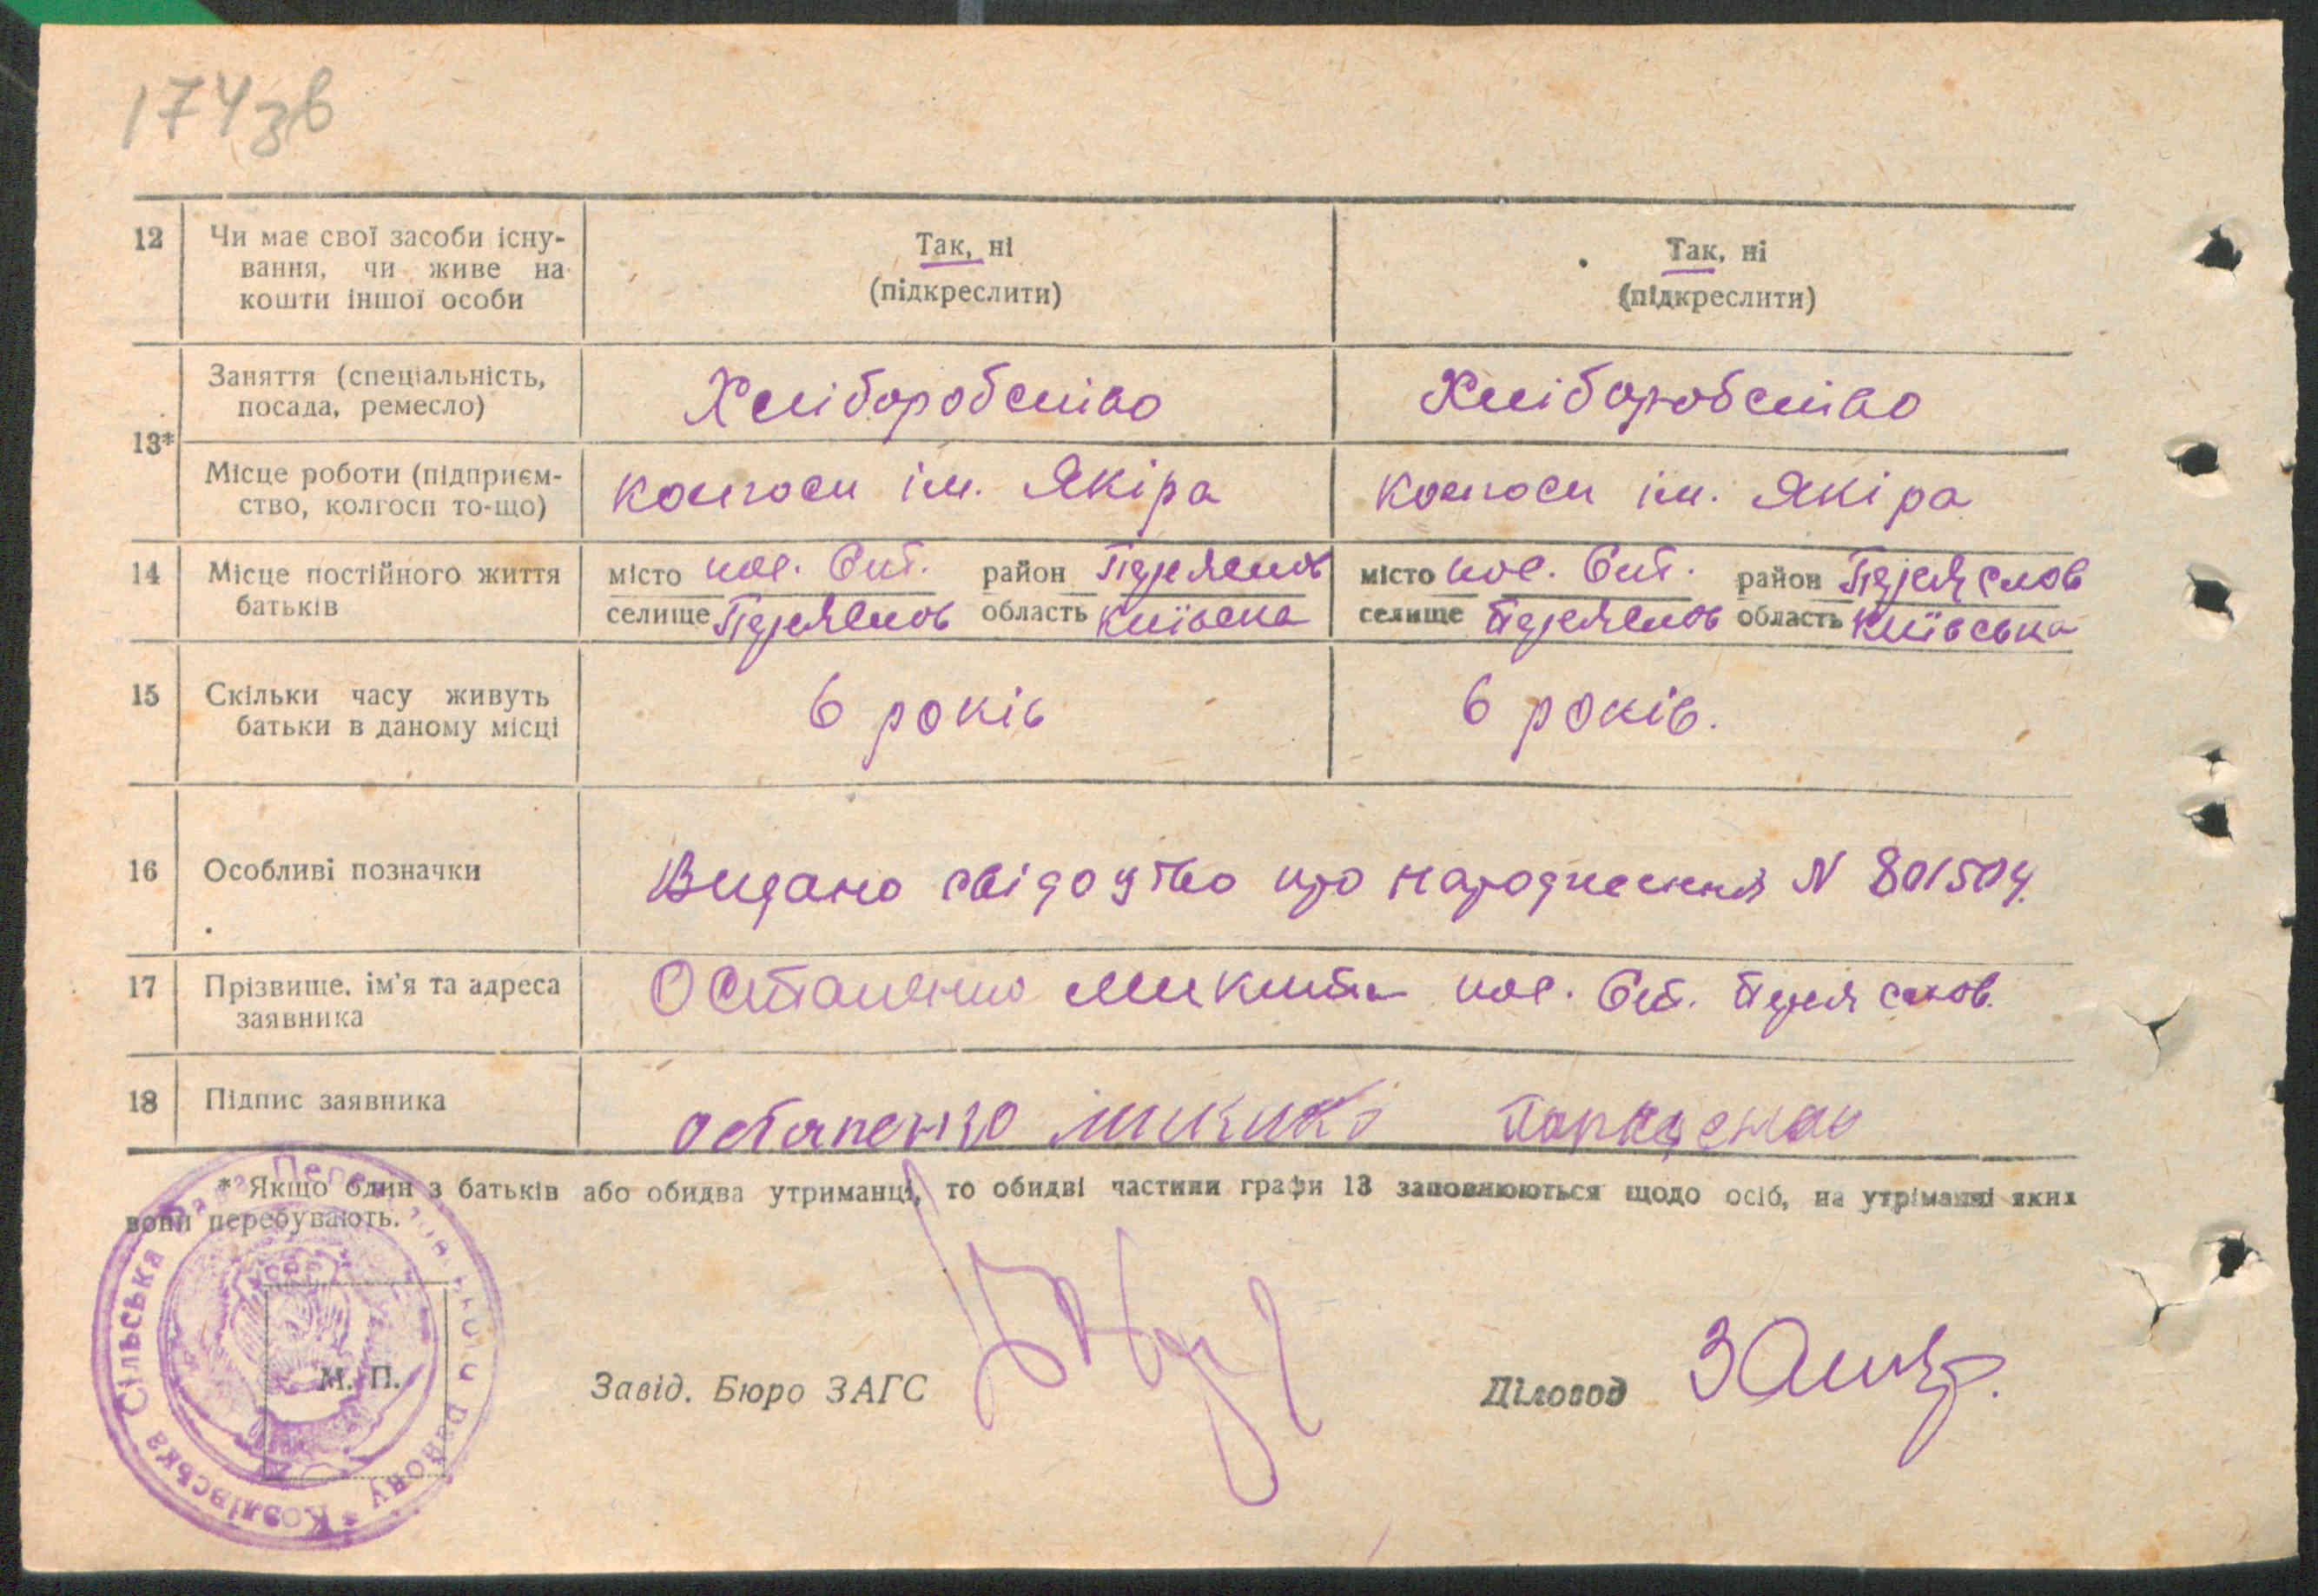 174 зв
12 Чи має свої засоби існу- Так, ні Так, ні
вання, чи живе на (підкреслити) (підкреслити)
кошти іншої особи
13* Заняття (спеціальність, Хліборобство Хліборобство
посада, ремесло)
Місце роботи (підприєм- колгосп ім. Якіра колгосп ім. Якіра
ство, колгосп то-що)
14 Місце постійного життя місто район місто район
батьків селище область Київська селище область Київська
15 Скільки часу живуть 6 років 6 років.
батьки в даному місці
16 Особливі позначки Видано свідоцтво про народження N 801504.
17 Прізвище, ім'я та адреса Остапенко Микита
заявника
18 Підпис заявника Остапенко
* Якщо один з батьків або обидва утриманці, то обидві частини графи 13 заповнюються щодо осіб, на утріманні яких
вони перебувають.
Козлівська Сільська Рада Району
М. П.
Завід. Бюро ЗАГС Діловод